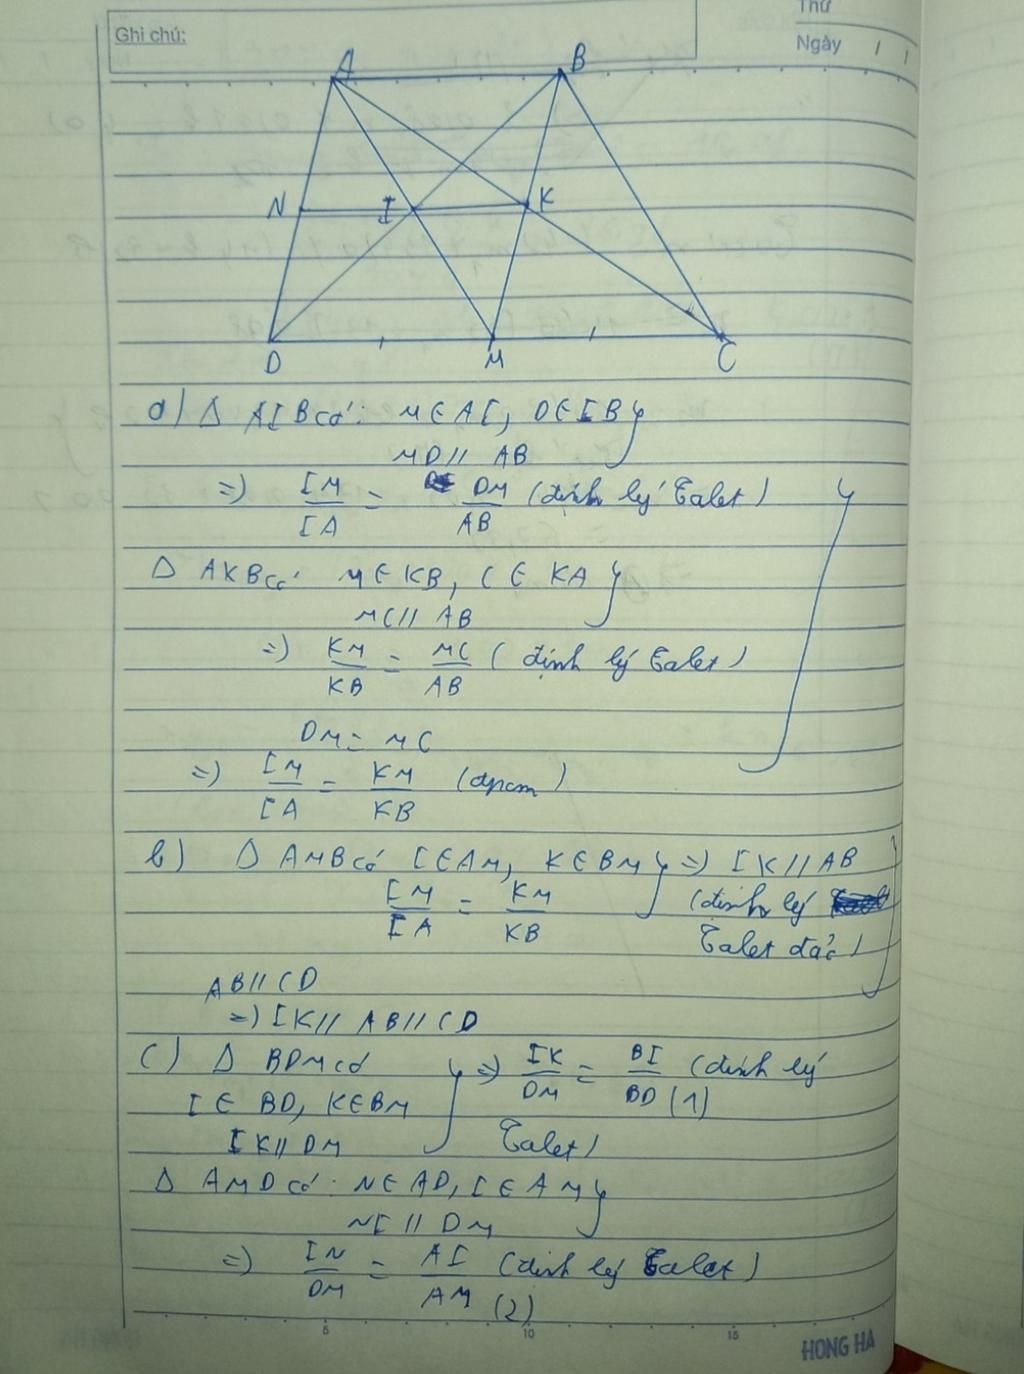 Ghi chú:
Thứ
Ngày / /
A B
N I K
D M C
a) Δ AIB có: M ∈ AI, D ∈ IB
MD // AB
=) IM/IA = DM/AB (định lý Talet)
Δ AKB có: M ∈ KB, C ∈ KA
MC // AB
=) KM/KB = MC/AB (định lý Talet)
DM = MC
=) IM/IA = KM/KB (đpcm)
b) Δ AMB có I ∈ AM, K ∈ BM =) IK // AB
IM/IA = KM/KB (định lý
Talet đảo)
AB // CD
=) IK // AB // CD
c) Δ BDM có =) IK/DM = BI/BD (1) (định lý
I ∈ BD, K ∈ BM
IK // DM Talet)
Δ AMD có: N ∈ AD, I ∈ AM
NI // DM
=) IN/DM = AI/AM (định lý Talet)
(2)
5 10 15
HONG HA